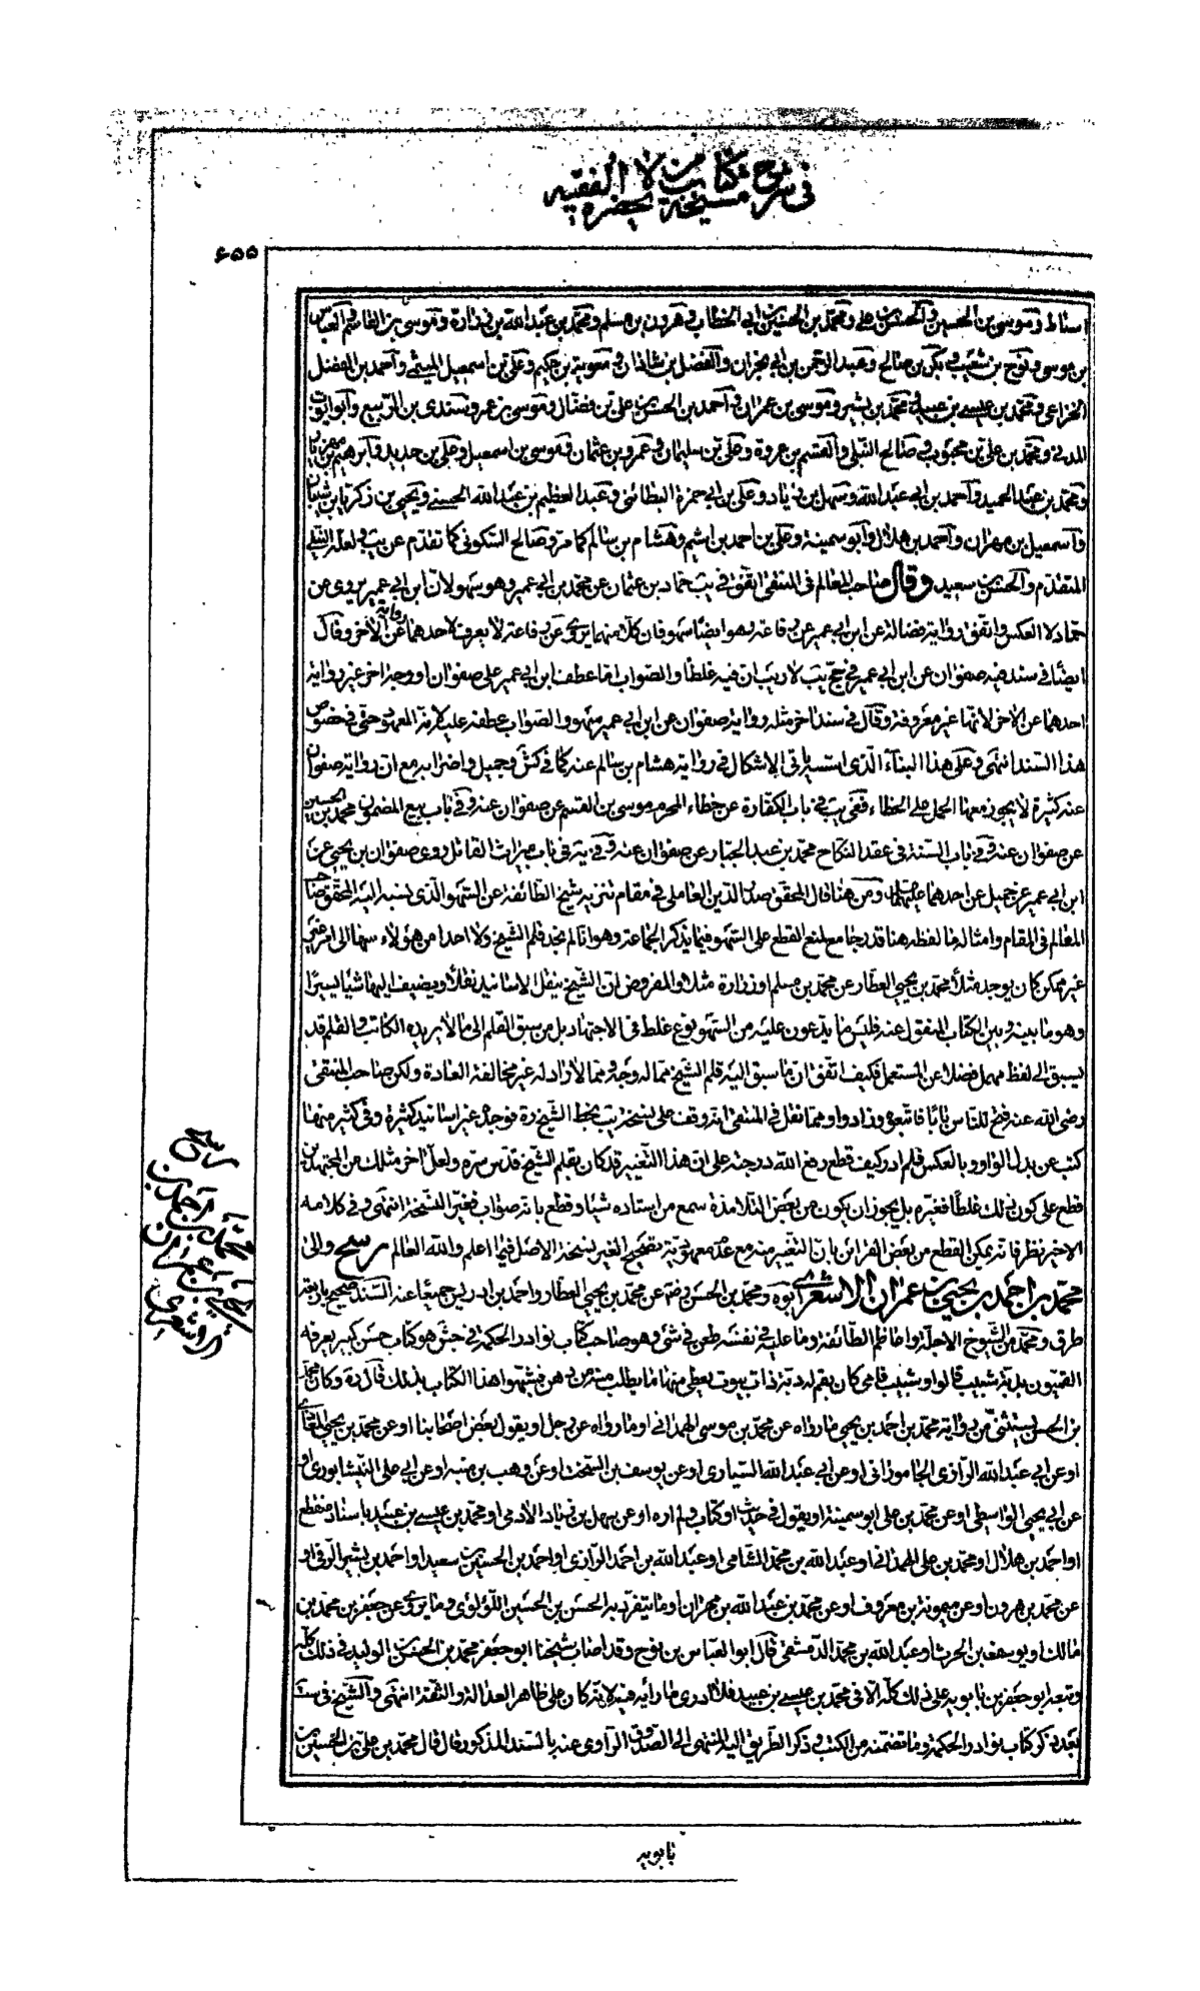 في شرح مشيخة كتاب من لا يحضره الفقيه
٦٥٥
اسباط وموسى بن الحسين والحسن بن علي ومحمد بن الحسين بن ابي الخطاب وهرون بن مسلم ومحمد بن عبد الله بن زرارة وموسى بن القاسم والعباس
بن موسى ونوح بن شعيب وبكر بن صالح وعبد الرحمن بن ابي نجران والفضل بن شاذان ومعوية بن حكيم وعلي بن اسمعيل الميثمي واحمد بن الفضل
الخزاعي ومحمد بن عيسى بن عبيد ومحمد بن بشير وموسى بن عمران واحمد بن الحسن بن علي بن فضال وموسى بن عمر وسندي بن الربيع وابو ايوب
المدني ومحمد بن علي بن محبوب وصالح النيلي والقسم بن عروة وعلي بن سليمان وعمرو بن عثمان وموسى بن اسمعيل وعلي بن حديد وابرهيم بن مهزيار
ومحمد بن عبد الحميد واحمد بن ابي عبد الله وسهل بن زياد وعلي بن ابي حمزة البطائني وعبد العظيم بن عبد الله الحسني ويحيى بن زكريا بن شيبان
واسمعيل بن مهران واحمد بن هلال وابو سمينة وعلي بن احمد بن اشيم وهشام بن سالم كما مر وصالح السكوني كما تقدم عن يب ولعله النيلي
المتقدم والحسين بن سعيد وقال صاحب المعالم في المنتقى اتفق في يب حماد بن عثمان عن محمد بن ابي عمير وهو سهو لان ابن ابي عمير يروي عن
حماد لا العكس واتفق رواية فضالة عن ابن ابي عمير عن رفاعة وهو ايضا سهو فان كلا منهما يروي عن رفاعة لا يعرف لاحدهما رواية عن الاخر وقال
ايضا في سند فيه صفوان عن ابن ابي عمير في حج يب لا ريب ان فيه غلطا والصواب اما عطف ابن ابي عمير على صفوان او وجه اخر غير رواية
احدهما عن الاخر لانها غير معروفة وقال في سند اخر مثله رواية صفوان عن ابن ابي عمير سهو والصواب عطفه عليه لانه المعهود حتى في خصوص
هذا السند انتهى وعلى هذا البناء الذي اسسه ياتي الاشكال في رواية هشام بن سالم عنه كما في كش وجميل واضرابه مع ان رواية صفوان
عنه كثيرة لا يجوز معها الحمل على الخطاء ففي يب في باب الكفارة عن خطاء المحرم موسى بن القسم عن صفوان عنه وفي باب بيع المضمون محمد بن الحسين
عن صفوان عنه وفي باب السنة في عقد النكاح محمد بن عبد الجبار عن صفوان عنه وفي يه في باب ميراث القاتل روى صفوان بن يحيى عن
ابن ابي عمير عن جميل عن احدهما عليهما السلام ومن هنا قال المحقق صدر الدين العاملي في مقام تنزيه شيخ الطائفة عن السهو الذي نسبه اليه المحقق صاحب
المعالم في المقام وامثاله ما لفظه هنا قدر جامع لمنع القطع على السهو فيما يذكر الجماعة وهو انا لم نجد قلم الشيخ ولا احدا من هؤلاء سها الى امر
غير ممكن كان يوجد مثلا محمد بن يحيى العطار عن محمد بن مسلم او زرارة مثلا والمفروض ان الشيخ ينقل الاسانيد نقلا ويضيف اليها شيئا يسيرا
وهو ما بينه وبين الكتاب المنقول عنه فليس ما يدعون عليه من السهو بوقوع غلط في الاجتهاد بل من سبق القلم الى ما لا يريده الكاتب والقلم قد
يسبق الى لفظ مهمل فضلا عن المستعمل فكيف اتفق ان ما سبق اليه قلم الشيخ مما له وجه ومما لا راد له غير مخالفة العادة ولكن صاحب المنتقى
رضي الله عنه فتح للناس بابا فاتبعوه وزادوا ومما نقل في المنتقى انه وقف على نسخة يب بخط الشيخ ره فوجده غير اسانيد كثيرة وفي كثير منها
كتب عن بدل الواو وبالعكس فلم ادر كيف قطع رفع الله درجته على ان هذا التغيير قد كان بقلم الشيخ قدس سره ولعل اخر مثلك من المجتهدين
قطع على كون ذلك غلطا فغيره بل يجوز ان يكون من بعض التلامذة سمع من استاده شيئا وقطع بانه صواب فغير النسخة انتهى وفي كلامه
الاخير نظر فانه يمكن القطع من بعض القرائن بان التغيير منه مع عدم معهودية تصحيح الغير نسخة الاصل فيما اعلم والله العالم رسح والى
محمد بن احمد بن يحيى بن عمران الاشعري ابوه ومحمد بن الحسن رضه عن محمد بن يحيى العطار واحمد بن ادريس جميعا عنه السند صحيح باربعة
طرق ومحمد من الشيوخ الاجلة واعاظم الطائفة وما عليه في نفسه طعن في شئ وهو صاحب كتاب نوادر الحكمة في جش هو كتاب حسن كبير يعرفه
القميون بدبة شبيب قالوا وشبيب فامي كان بقم له دبة ذات بيوت يعطي منها ما يطلب منه من دهن فشبهوا هذا الكتاب بذلك قال ره وكان محمد
بن الحسن يستثني من رواية محمد بن احمد بن يحيى ما رواه عن محمد بن موسى الهمداني او ما رواه عن رجل او يقول بعض اصحابنا او عن محمد بن يحيى المعاذي
او عن ابي عبد الله الرازي الجاموراني او عن ابي عبد الله السياري او عن يوسف بن السخت او عن وهب بن منبه او عن ابي علي النيشابوري او
عن ابي يحيى الواسطي او عن محمد بن علي ابو سمينة او يقول في حديث او كتاب ولم اره او عن سهل بن زياد الادمي او محمد بن عيسى بن عبيد باسناد منقطع
او احمد بن هلال او محمد بن علي الهمداني او عبد الله بن محمد الشامي او عبد الله بن احمد الرازي او احمد بن الحسين بن سعيد او احمد بن بشير الرقي او
عن محمد بن هرون او عن ميمونة بن معروف او عن محمد بن عبد الله بن مهران او ما ينفرد به الحسن بن الحسين اللؤلؤي وما يروى عن جعفر بن محمد بن
مالك او يوسف بن الحرث او عبد الله بن محمد الدمشقي قال ابو العباس بن نوح وقد اصاب شيخنا ابو جعفر محمد بن الحسن بن الوليد في ذلك كله
وتبعه ابو جعفر بن بابويه على ذلك كله الا في محمد بن عيسى بن عبيد فلا ادري ما رايه فيه لانه كان على ظاهر العدالة والثقة انتهى والشيخ في ست
بعد ذكر كتاب نوادر الحكمة وما تضمنه من الكتب وذكر الطريق اليه المنتهى الى الصدوق الراوي عنه بالسند المذكور قال قال محمد بن علي بن الحسين بن
رسح
محمد بن احمد بن
يحيى بن عمران
الاشعري
بابويه